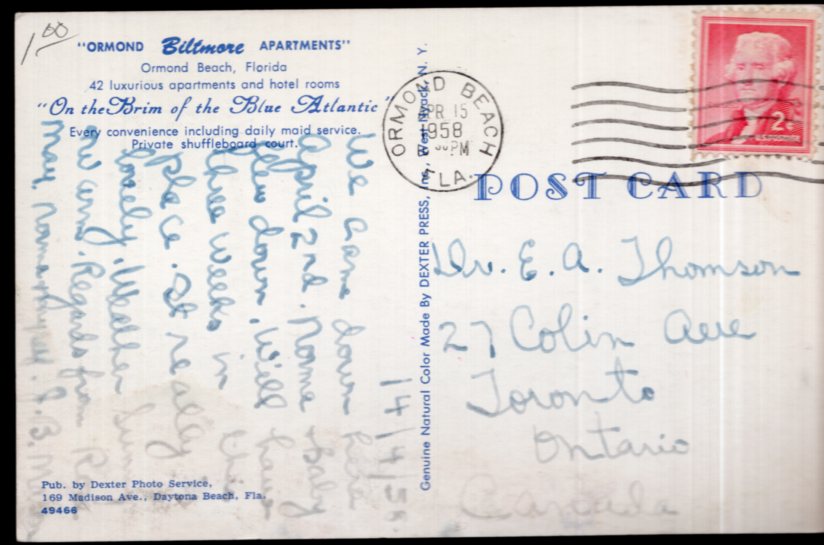 1.00
"ORMOND Biltmore APARTMENTS"
Ormond Beach, Florida
42 luxurious apartments and hotel rooms
"On the Brim of the Blue Atlantic"
Every convenience including daily maid service.
Private shuffleboard court.
14/4/58.
We came down here
April 2nd. Norma & baby
flew down. Will have
three weeks in this
place. It really is
lovely. Weather sunny
and warm. Regards from
May, Norma
Pub. by Dexter Photo Service,
169 Madison Ave., Daytona Beach, Fla.
49466
Genuine Natural Color Made By DEXTER PRESS, Inc., West Nyack, N. Y.
ORMOND BEACH
APR 15
1958
PM
FLA.
2¢
POST CARD
Dr. E. A. Thomson
27 Colin Ave
Toronto
Ontario
Canada